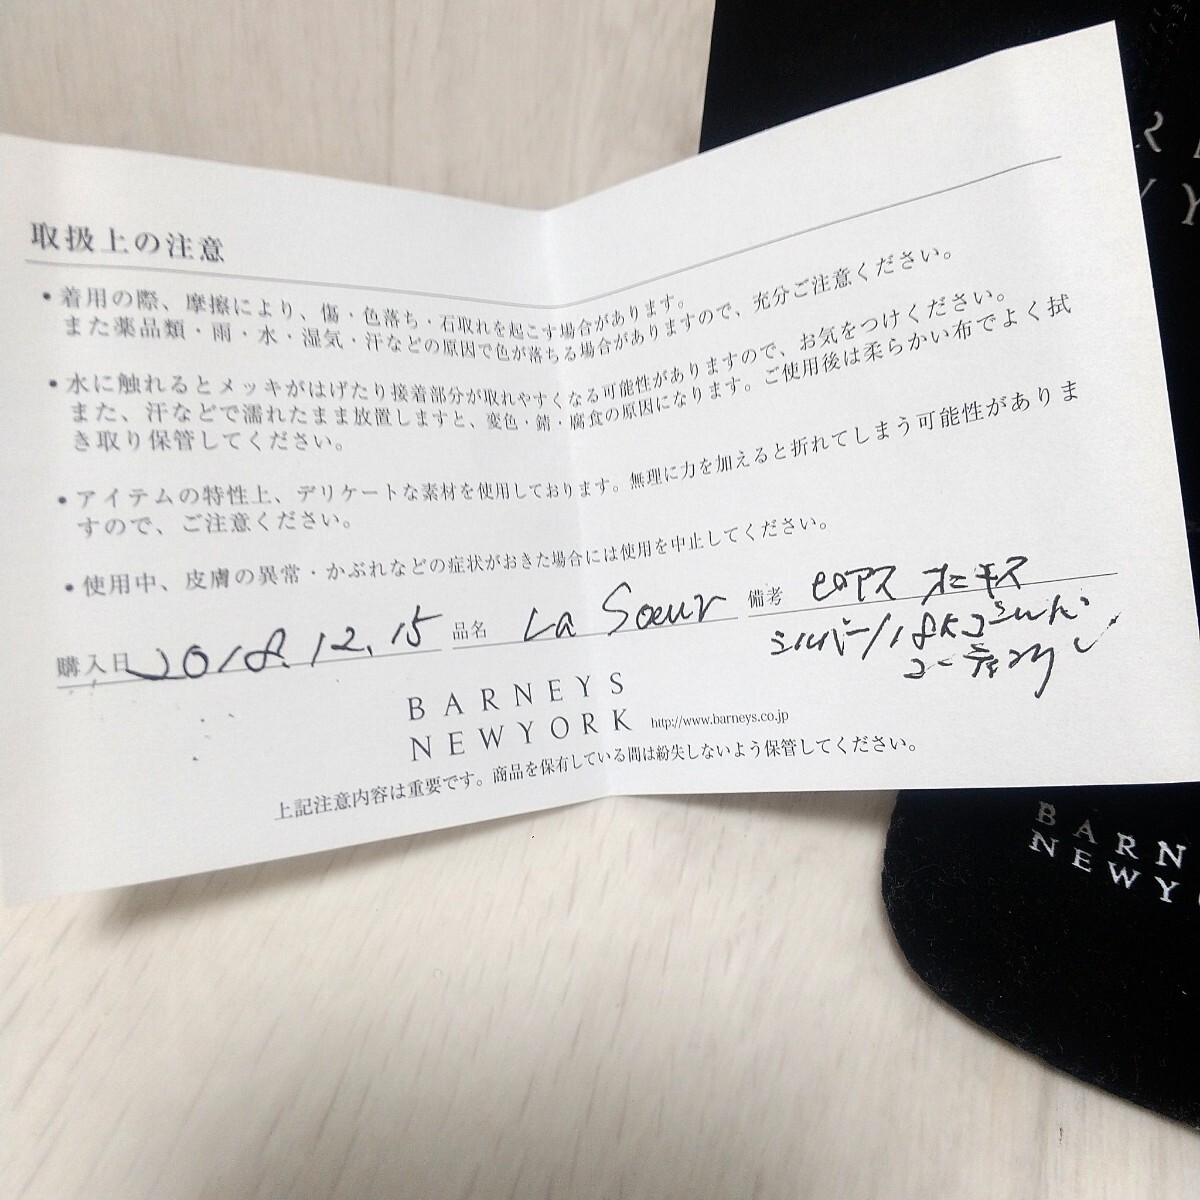 取扱上の注意
• 着用の際、摩擦により、傷・色落ち・石取れを起こす場合があります。
また薬品類・雨・水・湿気・汗などの原因で色が落ちる場合がありますので、充分ご注意ください。
• 水に触れるとメッキがはげたり接着部分が取れやすくなる可能性がありますので、お気をつけください。
また、汗などで濡れたまま放置しますと、変色・錆・腐食の原因になります。ご使用後は柔らかい布でよく拭
き取り保管してください。
• アイテムの特性上、デリケートな素材を使用しております。無理に力を加えると折れてしまう可能性がありま
すので、ご注意ください。
• 使用中、皮膚の異常・かぶれなどの症状がおきた場合には使用を中止してください。
購入日 2018.12.15 品名 La Soeur 備考 ピアス オニキス
シルバー/18Kゴールド
コーティング
BARNEYS
NEWYORK http://www.barneys.co.jp
上記注意内容は重要です。商品を保有している間は紛失しないよう保管してください。
BARN
NEWY